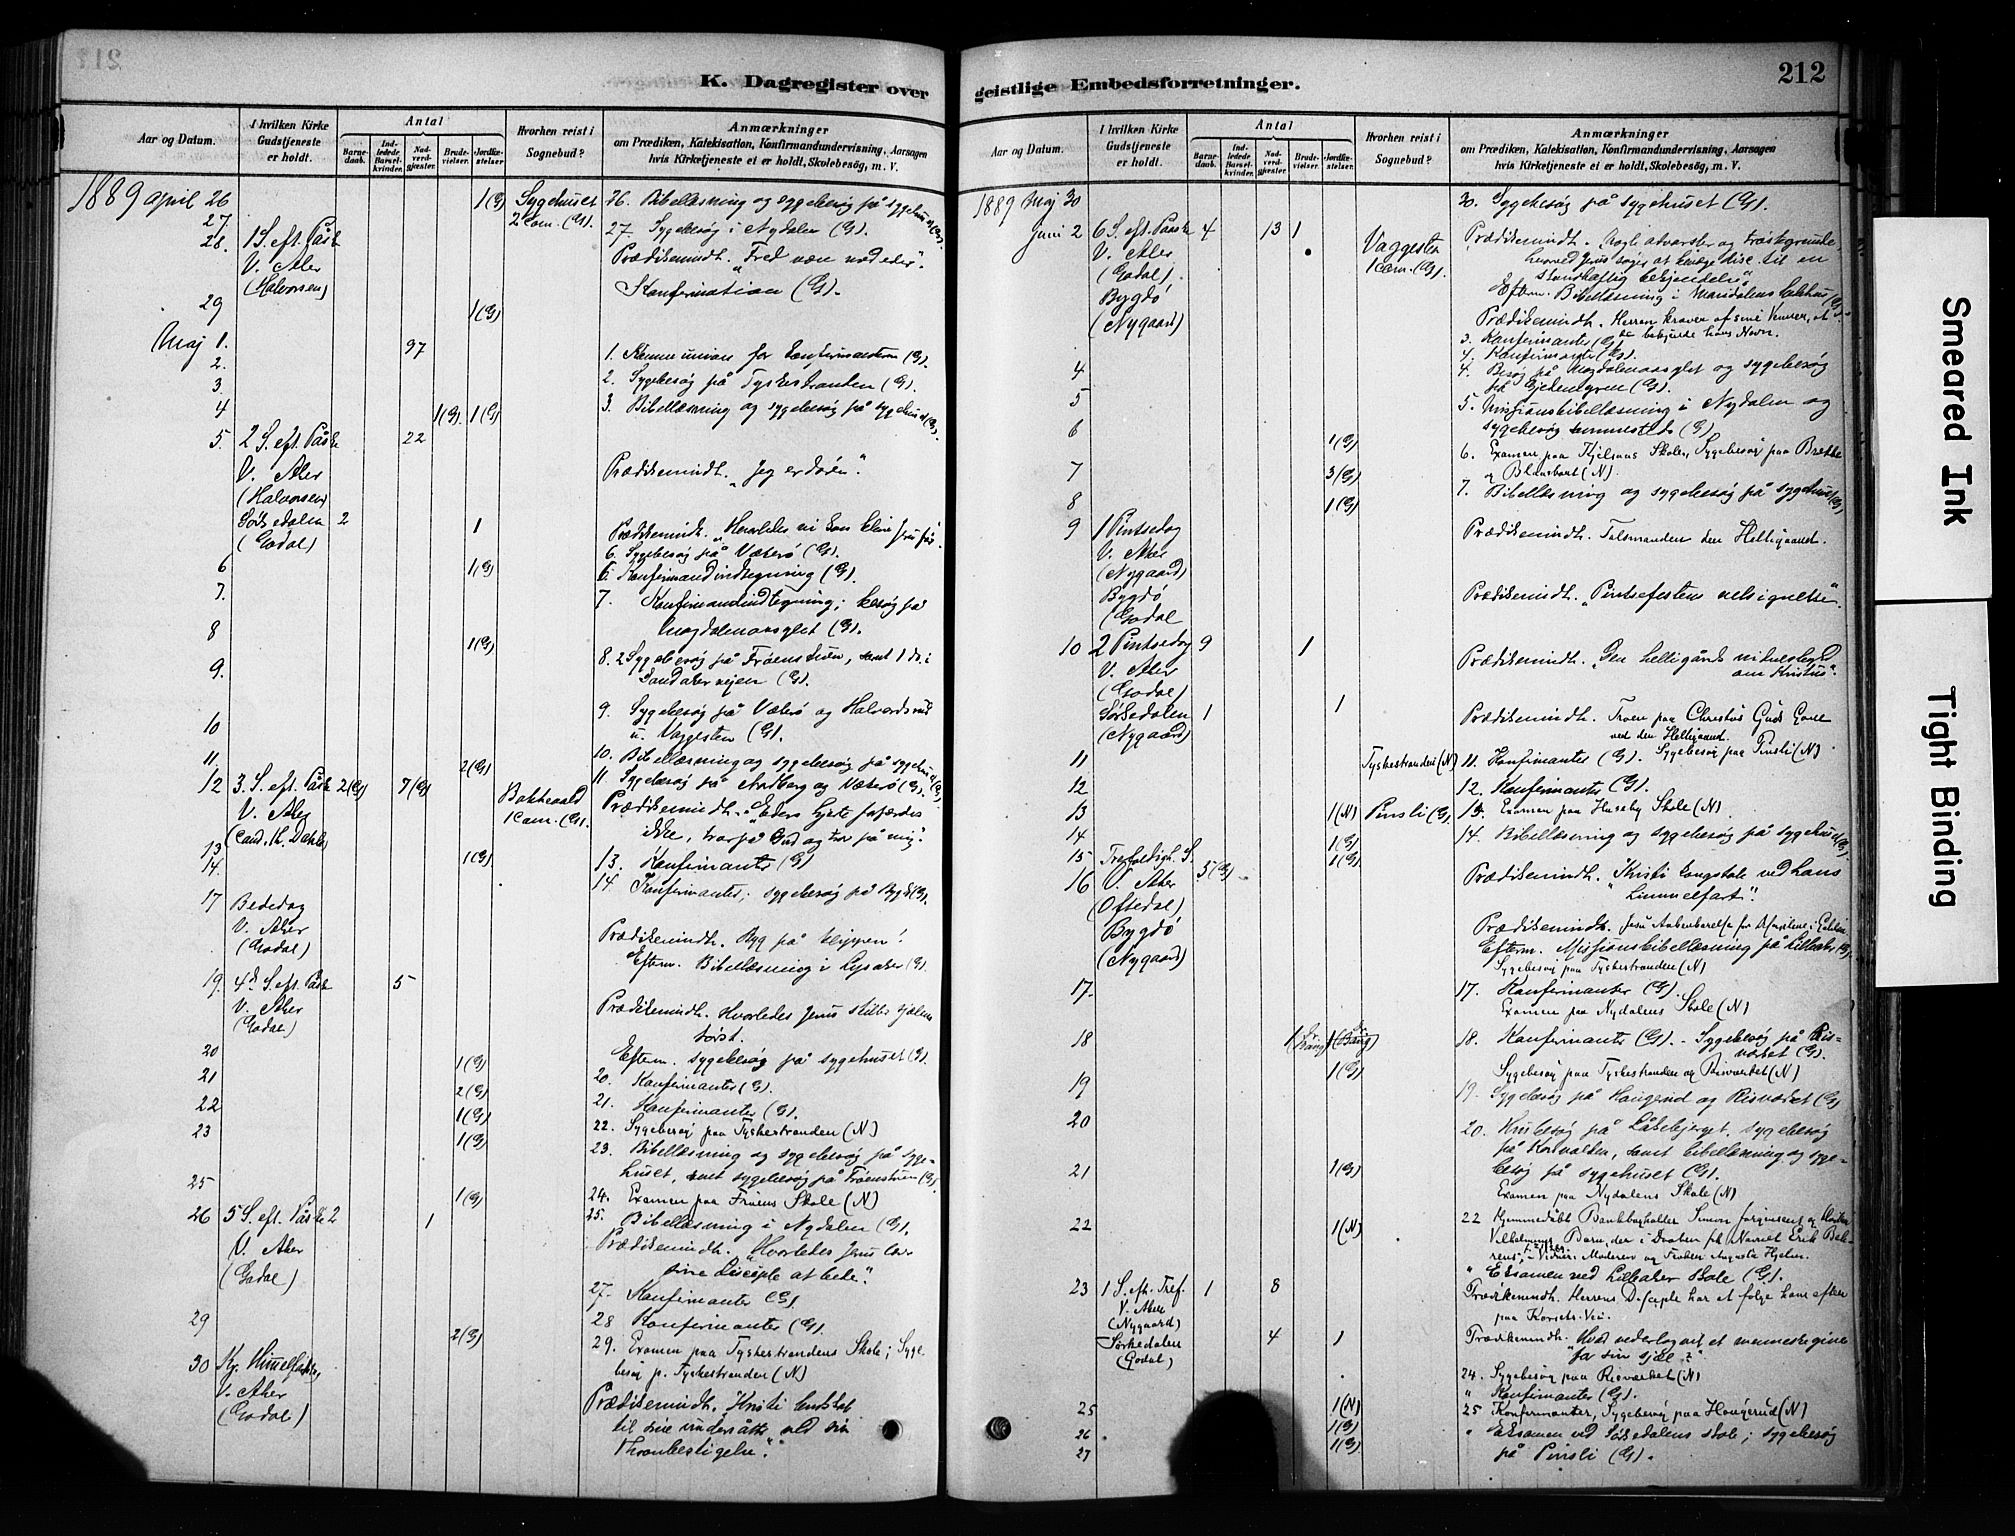 K. Dagregister over
Aar og Datum.
I hvilken Kirke Gudstjeneste er holdt.
Antal
Barnedaab.
Indledede Barselkvinder.
Nadverdgjester.
Brudevielser.
Jordkastelser.
Hvorhen reist i Sognebud?
Anmærkninger
om Prædiken, Katekisation, Konfirmandundervisning, Aarsagen
hvis Kirketjeneste et er holdt, Skolebesög, m. V.
1889 april 26 1(G) Sygehuset 26. Bibellæsning og sygebesøg på sygehuset (G).
27. 2 Com. (G). 27. Sygebesøg i Nydalen (G).
28. 1 S. eft. Påske Prædikemndh. "Fred være med eder".
V. Aker
(Halvorsen) Konfirmation (G).
29 1(G)
Maj 1. 97 1. Kommunion for konfirmanterne (G).
2. 2. Sygebesøg på Tyskestranden (G).
3 3. Bibellæsning og sygebesøg på sygehuset (G).
4 1(G). 1(G)
5. 2 S. eft. Påske 22
V. Aker Prædikemndh. "Jeg er døren".
(Halvorsen)
Sørkedalen 2 1
(Godal) Prædikemndh. "Hvorledes vi kan blive
6. Sygebesøg på Vækerø (G).
6 1(G) 6. Konfirmandindtegning (G).
7. 7. Konfirmandindtegning; besøg på
Magdalenaasylet (G).
8 1(G) 8. 2 Sygebesøg på Frøens Løkke, samt 1 do. i
9. Sandakerveien (G).
9. Sygebesøg på Vækerø og
10 Vaggesten (G).
11. 2(G) 10. Bibellæsning og sygebesøg på sygehuset (G).
12 3. S. eft. Påske 2(G) 7(G) 11. Sygebesøg på Nordberg og Vækerø (G).
V. Aker Bakkehald Prædikemndh. "Eders hjerte forfærdes
(Cand. th. Dahle) 1 Com. (G). ikke, tror på Gud og tror på mig".
13 1(G) 13. Konfirmanter (G)
14. 14. Konfirmanter; sygebesøg på Bygdø (G).
17 Bededag
V. Aker Prædikemndh. Byg på klippen!
(Godal) Efterm. Bibellæsning i Lysaker (G).
19. 4de S. eft. Påske 5
V. Aker Prædikemndh. Hvorledes Jesus stiller sjælens
(Godal) tørst.
20 1(G) Efterm. sygebesøg på sygehuset (G).
21 2(G) 20. Konfirmanter (G).
22 1(G) 21. Konfirmanter (G).
23 1(G) 22. Sygebesøg paa Tyskestranden (N)
23. Bibellæsning og sygebesøg på syge-
huset, samt sygebesøg på Frøenstuen (G).
25 1(G) 24. Examen paa Frøens Skole (N)
26 5 S. eft. Påske 2 1 25. Bibellæsning i Nydalen (G).
V. Aker Prædikemndh. "Hvorledes Jesus lærer
(Godal) sine Disciple at bede".
27. Konfirmanter (G).
29 2(G) 28 Konfirmanter (G).
29. Examen paa Tyskestrandens Skole; Syge
30 Kr. Himmelfartsdag besøg p. Tyskestranden (N)
V. Aker Prædikemndh. "Kristi budskab
(Godal) til sine undersåtter ved sin
Thronbestigelse".
geistlige Embedsforretninger.
212
Aar og Datum.
I hvilken Kirke Gudstjeneste er holdt.
Antal
Barnedaab.
Indledede Barselkvinder.
Nadverdgjester.
Brudevielser.
Jordkastelser.
Hvorhen reist i Sognebud?
Anmærkninger
om Prædiken, Katekisation, Konfirmandundervisning, Aarsagen
hvis Kirketjeneste et er holdt, Skolebesög, m. V.
1889 Maj 30 30. Sygebesøg på sygehuset (G).
Juni 2 6 S. eft. Paaske 4 13 1 Prædikemndh. Nogle advarsler og trøstegrunde,
V. Aker Vaggesten hvorved Jesus søger at bevæge disc. til en
(Godal) 1 Com. (G). standhaftig bekjendelse".
Bygdø Efterm. Bibellæsning i Maridalens bedehus (G)
(Nygaard) Prædikemndh. Herren kræver af sine Venner, at
de bekjende hans Navn.
3. Konfirmanter (G)
4 4. Konfirmanter (G).
4. Besøg på Magdalenaasylet og sygebesøg
på (G).
5 5. Missionsbibellæsning i Nydalen og
sygebesøg sammesteds (G)
6 1(G) 6. Examen paa Kjelsaas Skole, Sygebesøg paa Brekke
7 3(G) og (N).
8 1(G) 7. Bibellæsning og sygebesøg på sygehuset (G)
9 1 Pintsedag
V. Aker Prædikemndh. Talsmanden den Helligaand.
(Nygaard)
Bygdø Prædikemndh. "Pintsefestens velsignelse".
(Godal
10 2 Pintsedag 9 1
V. Aker Prædikemndh. "Den helligånds vidnesbyrd
(Godal) om Kristus".
Sørkedalen 1 1
(Nygaard) Prædikemndh. Troen paa Christus Guds Gave
ved den Helligaand.
11 Tyskestranden (N) 11. Konfirmanter (G). Sygebesøg paa Pinsli (N).
12 12. Konfirmanter (G).
13 1(N) Pinsli (G) 13. Examen paa Huseby Skole (N)
14 1(G) 14. Bibellæsning og sygebesøg på sygehuset (G)
15 Trefoldigh. S. 1(G)
16 V. Aker 5(G) Prædikemndh. "Kristi kongstale ved hans
(Oftedal) himmelfart".
Bygdø Prædikemndh.
(Nygaard) Efterm. Missionsbibellæsning på Lilleaker (G).
Sygebesøg paa Tyskestranden (N)
17. 17. Konfirmanter (G).
Examen paa Nydalens Skole (N)
18 1 (Bang) 1 (Bang) 18. Konfirmanter (G). - Sygebesøg på Ris-
været (G).
19 1(G) Sygebesøg paa Tyskestranden og Risværket (N)
19. Sygebesøg på Haugerud og Risværket (G)
20 20. Husbesøg på Låkebjerget, sygebesøg
på Korsvolden, samt bibellæsning og syge-
21 1(G) besøg på sygehuset (G).
Examen paa Nydalens Skole (N)
22 1(N) 22 Hjemmedøbt Bankbogholder Simon Jørgensens og Hustru
Vilhelmines Barn, der i Daaben fik Navnet Erik
Vidner: Moderen og Frøken Augusta Hjelm.
" Eksamen ved Lilleaker Skole (G).
23 1 S. eft. Tref. 1 8 Prædikemndh. Herrens Disciple har at følge ham efter
V. Aker paa Korsets Vei.
(Nygaard)
Sørkedalen 4 1 Prædikemndh. "Hvad vederlag vil et menneske give
(Godal) for sin sjæl?"
24. Sygebesøg paa Risværket (N)
" Konfirmanter (G).
25 1(N) 25 Konfirmanter, Sygebesøg paa Haugerud (N)
26 1(G) " Eksamen ved Sørkedalens skole; sygebesøg
27 1(G) på Pinsli (G).
Smeared Ink
Tight Binding